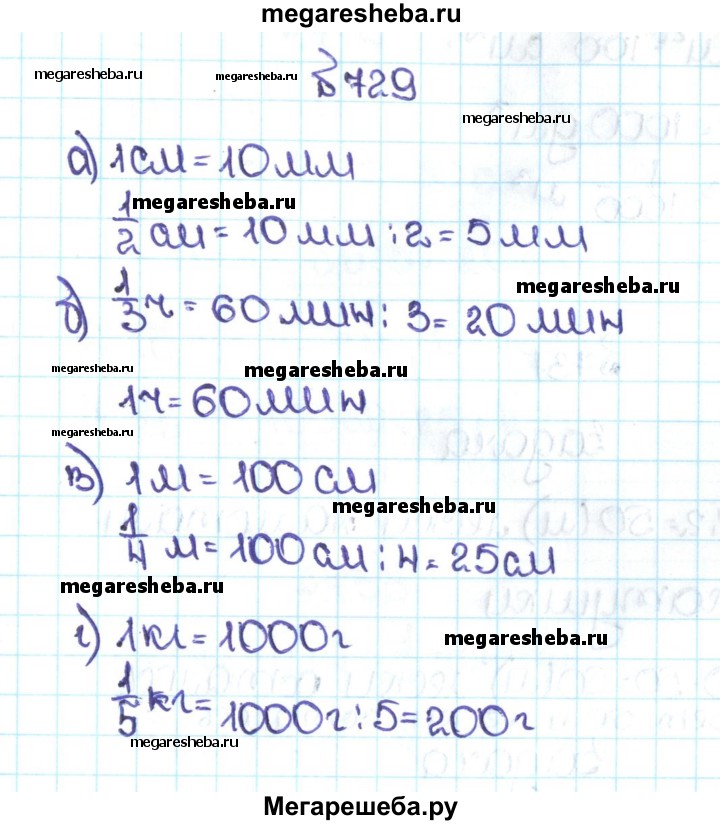 megaresheba.ru
megaresheba.ru megaresheba.ru №729
megaresheba.ru
а) 1см = 10мм
megaresheba.ru
1/2 см = 10мм : 2 = 5мм
megaresheba.ru
б) 1/3 ч = 60мин : 3 = 20мин
megaresheba.ru megaresheba.ru
1ч = 60мин
megaresheba.ru
в) 1м = 100см
megaresheba.ru
1/4 м = 100см : 4 = 25см
megaresheba.ru
г) 1кг = 1000г
megaresheba.ru
1/5 кг = 1000г : 5 = 200г
megaresheba.ru
Мегарешеба.ру